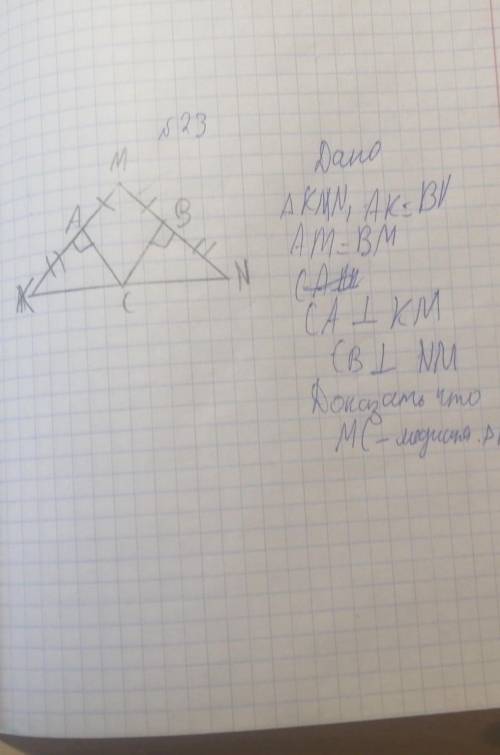 №23
M
A
B
K
C
N
Дано
△KMN, AK=BN
AM=BM
CA ⊥ KM
CB ⊥ NM
Доказать что
MC - медиана